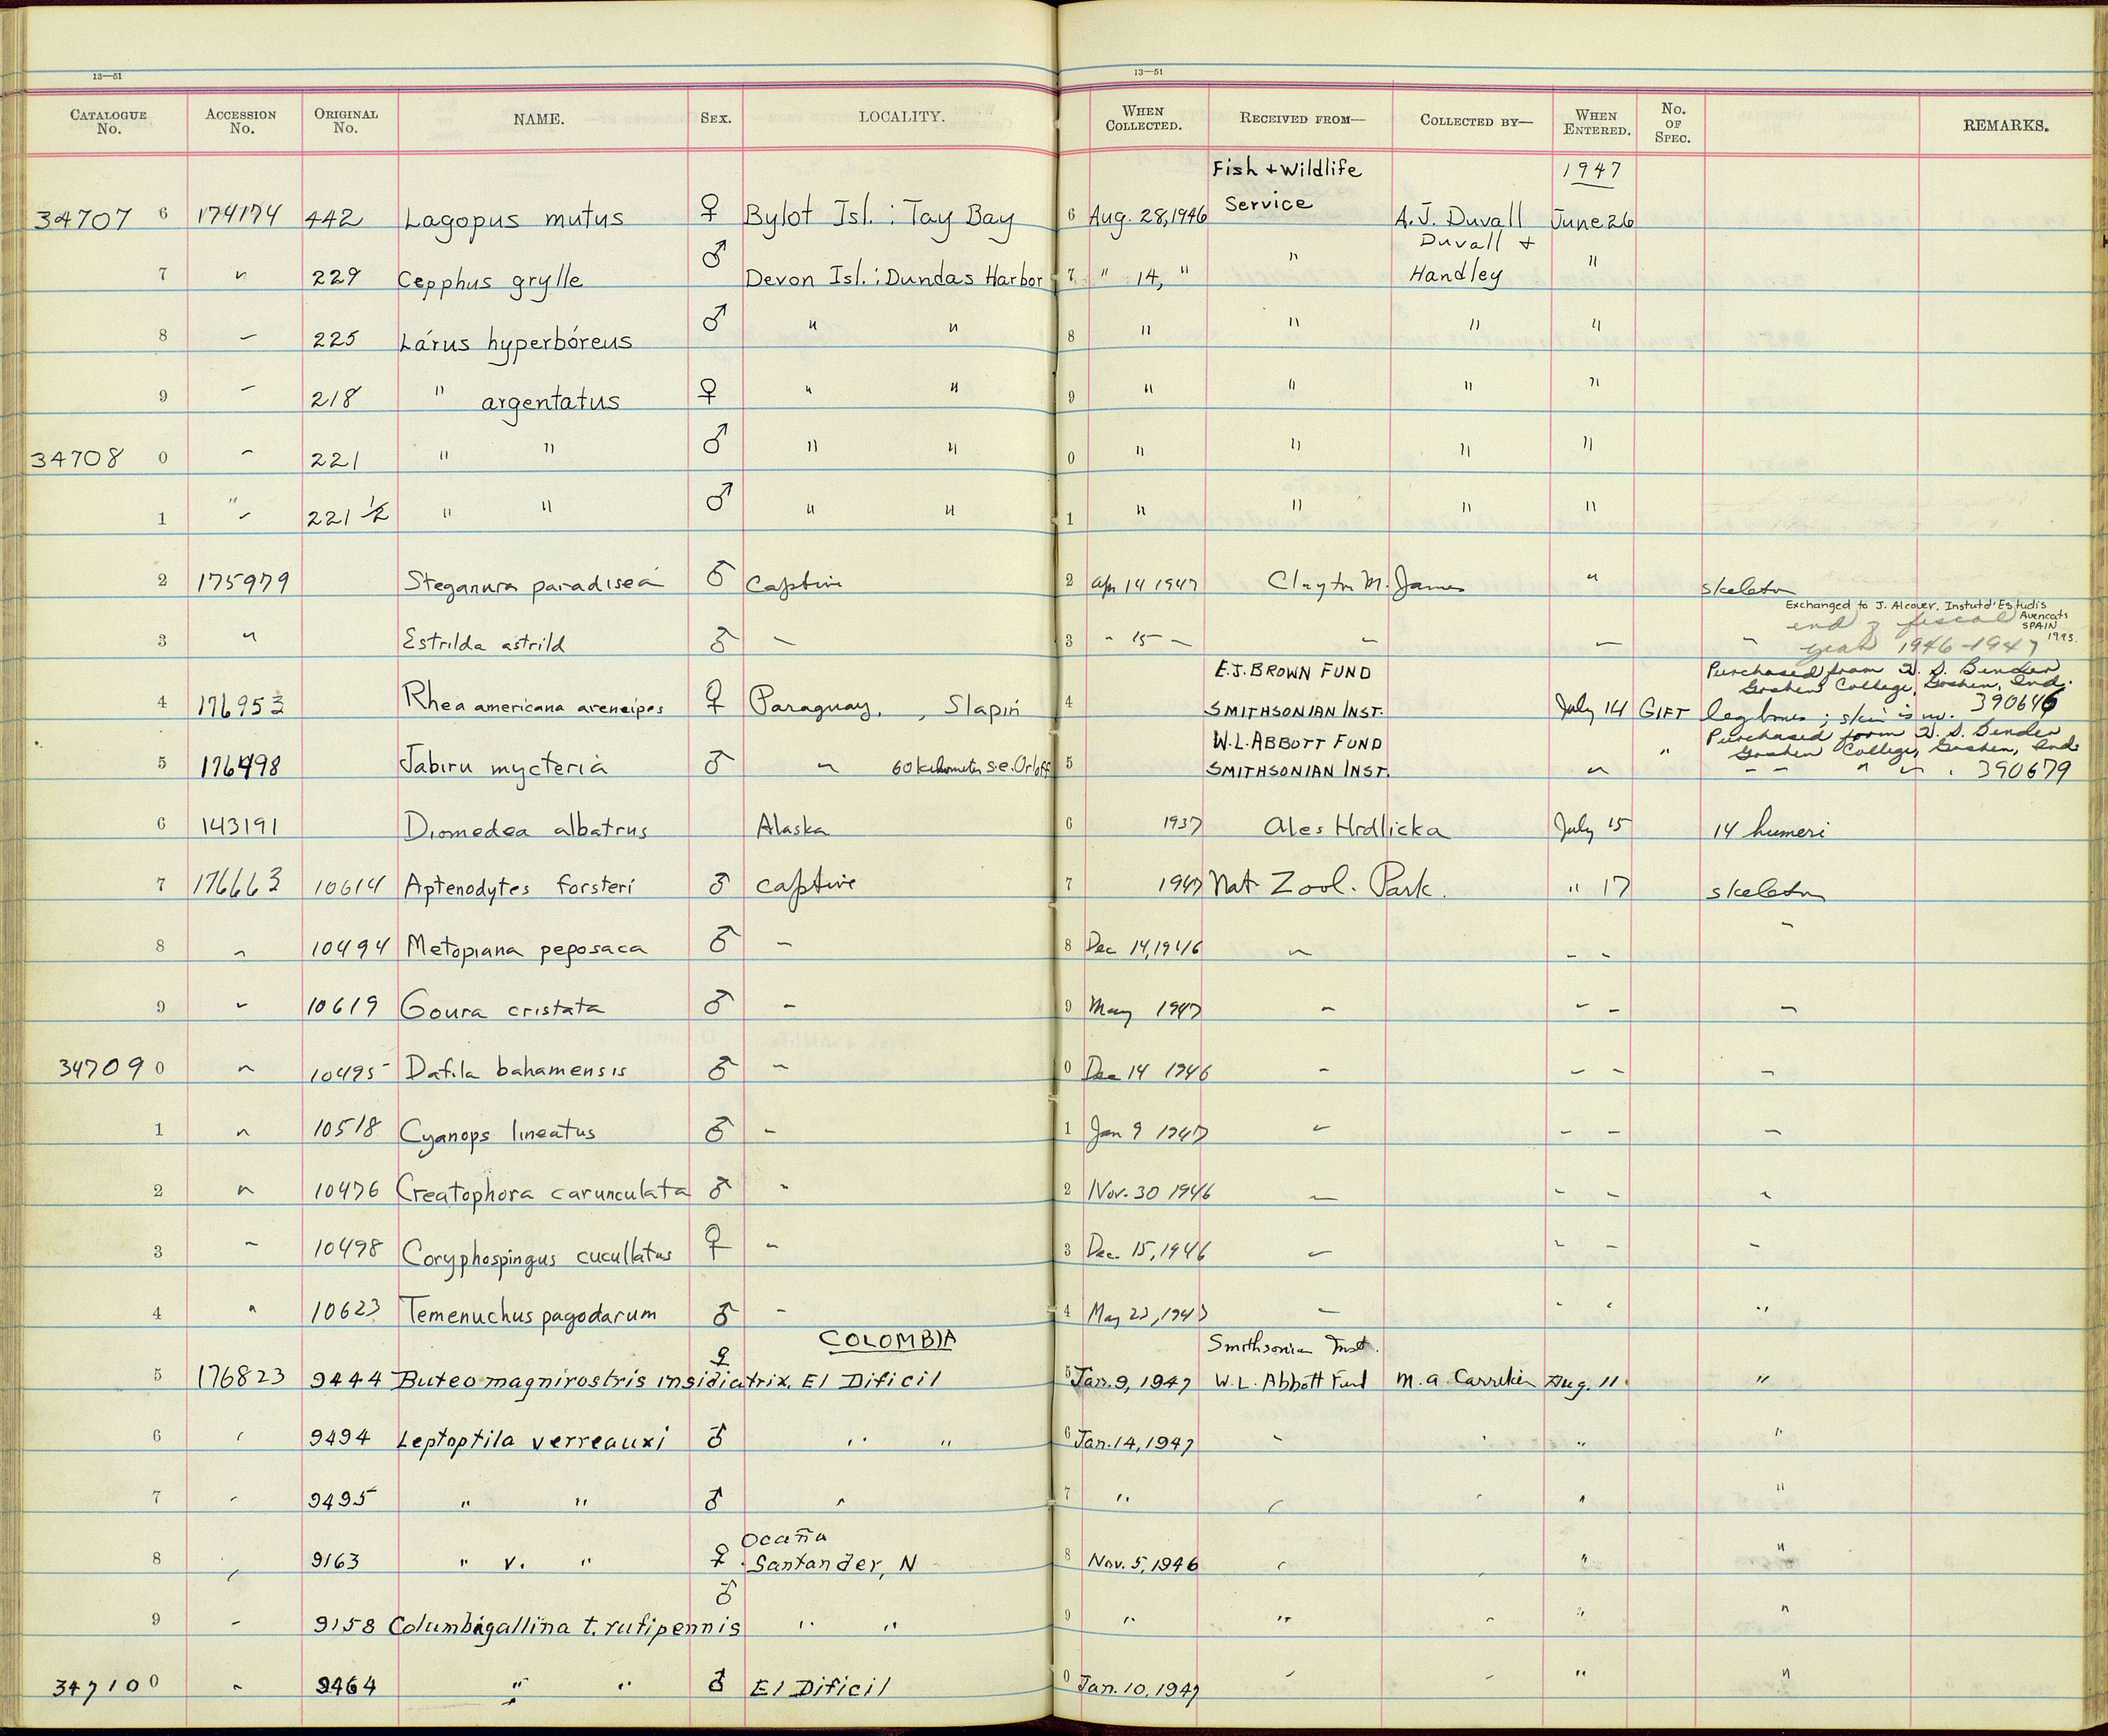 13—51 13—51
CATALOGUE No. ACCESSION No. ORIGINAL No. NAME. SEX. LOCALITY. WHEN COLLECTED. RECEIVED FROM— COLLECTED BY— WHEN ENTERED. No. OF SPEC. REMARKS.
Fish + Wildlife 1947
34707 6 174174 442 Lagopus mutus ♀ Bylot Isl. : Tay Bay 6 Aug. 28, 1946 Service A.J. Duvall June 26
Duvall +
7 " 229 Cepphus grylle ♂ Devon Isl. : Dundas Harbor 7 " 14, " " Handley "
8 " 225 Lárus hyperbóreus ♂ " " 8 " " " "
9 " 218 " argentatus ♀ " " 9 " " " "
34708 0 " 221 " " ♂ " " 0 " " " "
1 " 221 ½ " " ♂ " " 1 " " " "
2 175979 Steganura paradisea ♂ Captive 2 Apr 14 1947 Clayton M. James " skeleton
Exchanged to J. Alcover. Institut d'Estudis Avencats SPAIN 1993.
end of fiscal
3 " Estrilda astrild ♂ " 3 " 15 " " " " year 1946-1947
E.J. BROWN FUND Purchased from
Goshen College, Goshen, Ind.
4 176953 Rhea americana areneipes ♀ Paraguay, , Slapin 4 SMITHSONIAN INST. July 14 GIFT leg bones ; skin is no. 390646
W.L. ABBOTT FUND Purchased from
Goshen College, Goshen, Ind.
5 176498 Jabiru mycteria ♂ " 60 kilometers s.e. Orloff 5 SMITHSONIAN INST. " " " " " " . 390679
6 143191 Diomedea albatrus Alaska 6 1937 Ales Hrdlicka July 15 14 humeri
7 176663 10614 Aptenodytes forsteri ♂ captive 7 1947 Nat. Zool. Park. " 17 skeleton
8 " 10494 Metopiana peposaca ♂ " 8 Dec 14, 1946 " " " "
9 " 10619 Goura cristata ♂ " 9 May 1947 " " " "
34709 0 " 10495 Dafila bahamensis ♂ " 0 Dec 14 1946 " " " "
1 " 10518 Cyanops lineatus ♂ " 1 Jan 9 1947 " " " "
2 " 10476 Creatophora carunculata ♂ " 2 Nov. 30 1946 " " " "
3 " 10498 Coryphospingus cucullatus ♀ " 3 Dec. 15, 1946 " " " "
4 " 10623 Temenuchus pagodarum ♂ " 4 May 1947 " " " "
COLOMBIA Smithsonian Inst.
5 176823 9444 Buteo magnirostris insidiatrix ♀ El Dificil 5 Jan. 9, 1947 W.L. Abbott Fund M. A. Carriker Aug. 11. "
6 " 9494 Leptoptila verreauxi ♂ " " 6 Jan. 14, 1947 " " " "
7 " 9495 " " ♂ " 7 " " " " "
Ocaña
8 " 9163 " v. " ♀ Santander, N 8 Nov. 5, 1946 " " " "
9 " 9158 Columbigallina t. rufipennis ♂ " " 9 " " " " "
34710 0 " 9464 " " ♂ El Dificil 0 Jan. 10, 1947 " " " "